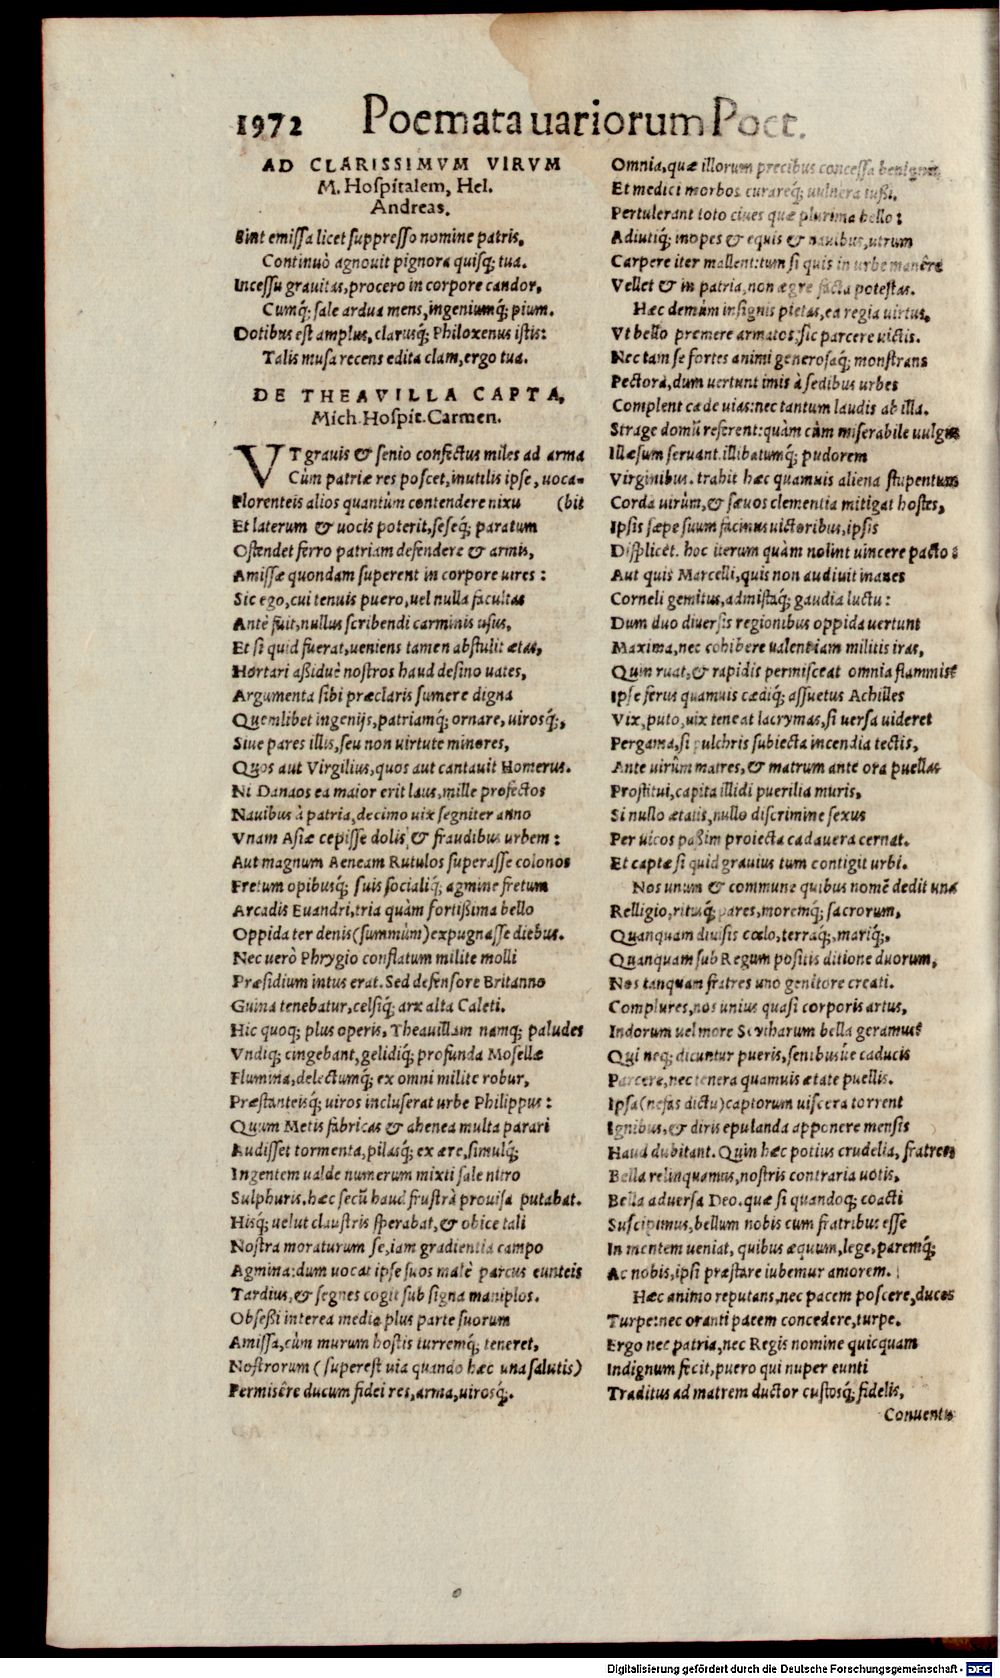 1972 Poemata uariorum Poet.
AD CLARISSIMVM VIRVM
M. Hospitalem, Hel.
Andreas.
Sint emissa licet suppresso nomine patris,
Continuò agnouit pignora quisq; tua.
Incessu grauitas, procero in corpore candor,
Cumq; sale ardua mens, ingeniumq; pium.
Dotibus est amplus, clarusq; Philoxenus istis:
Talis musa recens edita clam, ergo tua.
DE THEAVILLA CAPTA,
Mich. Hospit. Carmen.
VT grauis & senio confectus miles ad arma
Cùm patriæ res poscet, inutilis ipse, uoca-
Florenteis alios quantùm contendere nixu (bit
Et laterum & uocis poterit, seseq; paratum
Ostendet ferro patriam defendere & armis,
Amissæ quondam superent in corpore uires:
Sic ego, cui tenuis puero, uel nulla facultas
Antè fuit, nullus scribendi carminis usus,
Et si quid fuerat, ueniens tamen abstulit ætas,
Hortari aßiduè nostros haud desino uates,
Argumenta sibi præclaris sumere digna
Quemlibet ingenijs, patriamq; ornare, uirosq;,
Siue pares illis, seu non uirtute minores,
Quos aut Virgilius, quos aut cantauit Homerus.
Ni Danaos ea maior erit laus, mille profectos
Nauibus à patria, decimo uix segniter anno
Vnam Asiæ cepisse dolis & fraudibus urbem:
Aut magnum Aeneam Rutulos superasse colonos
Fretum opibusq; suis socialiq; agmine fretum
Arcadis Euandri, tria quàm fortißima bello
Oppida ter denis (summùm) expugnasse diebus.
Nec uerò Phrygio conflatum milite molli
Præsidium intus erat. Sed defensore Britanno
Guina tenebatur, celsiq; arx alta Caleti.
Hic quoq; plus operis, Theauillam namq; paludes
Vndiq; cingebant, gelidiq; profunda Mosellæ
Flumina, delectumq; ex omni milite robur,
Præstanteisq; uiros incluserat urbe Philippus:
Quum Metis fabricas & ahenea multa parari
Audisset tormenta, pilasq; ex ære, simulq;
Ingentem ualde numerum mixti sale nitro
Sulphuris. hæc secũ haud frustrà prouisa putabat.
Hisq; uelut claustris sperabat, & obice tali
Nostra moraturum se, iam gradientia campo
Agmina: dum uocat ipse suos malè parcus eunteis
Tardius, & segnes cogit sub signa maniplos.
Obseßi interea media plus parte suorum
Amissa, cùm murum hostis turremq; teneret,
Nostrorum (superest uia quando hæc una salutis)
Permisêre ducum fidei res, arma, uirosq;.
Omnia, quæ illorum precibus concessa benignis,
Et medici morbos curareq; uulnera iußi,
Pertulerant toto ciues quæ plurima bello:
Adiutiq; inopes & equis & nauibus, utrum
Carpere iter mallent: tum si quis in urbe manêre
Vellet & in patria, non ægre facta potestas.
Hæc demùm insignis pietas, ea regia uirtus,
Vt bello premere armatos, sic parcere uictis.
Nec tam se fortes animi generosaq; monstrans
Pectora, dum uertunt imis à sedibus urbes
Complent cæde uias: nec tantum laudis ab illa.
Strage domũ referent: quàm cùm miserabile uulgus
Illæsum seruant. illibatumq; pudorem
Virginibus. trahit hæc quamuis aliena stupentum
Corda uirùm, & sæuos clementia mitigat hostes,
Ipsis sæpe suum facinus uictoribus, ipsis
Displicet. hoc iterum quàm nolint uincere pacto:
Aut quis Marcelli, quis non audiuit inanes
Corneli gemitus, admistaq; gaudia luctu:
Dum duo diuersis regionibus oppida uertunt
Maxima, nec cohibere ualentiam militis iras,
Quin ruat, & rapidis permisceat omnia flammis?
Ipse ferus quamuis cædiq; assuetus Achilles
Vix, puto, uix teneat lacrymas, si uersa uideret
Pergama, si pulchris subiecta incendia tectis,
Ante uirûm matres, & matrum ante ora puellas
Prostitui, capita illidi puerilia muris,
Si nullo ætatis, nullo discrimine sexus
Per uicos paßim proiecta cadauera cernat.
Et captæ si quid grauius tum contigit urbi.
Nos unum & commune quibus nomẽ dedit una
Relligio, ritusq; pares, moremq; sacrorum,
Quanquam diuisis cœlo, terraq;, mariq;,
Quanquam sub Regum positis ditione duorum,
Nos tanquam fratres uno genitore creati.
Complures, nos unius quasi corporis artus,
Indorum uel more Scytharum bella geramus?
Qui neq; dicuntur pueris, senibusue caducis
Parcere, nec tenera quamuis ætate puellis.
Ipsa (nefas dictu) captorum uiscera torrent
Ignibus, & diris epulanda apponere mensis
Haud dubitant. Quin hæc potius crudelia, fratres
Bella relinquamus, nostris contraria uotis,
Bella aduersa Deo. quæ si quandoq; coacti
Suscipimus, bellum nobis cum fratribus esse
In mentem ueniat, quibus æquum, lege, paremq;
Ac nobis, ipsi præstare iubemur amorem.
Hæc animo reputans, nec pacem poscere, duces
Turpe: nec oranti pacem concedere, turpe.
Ergo nec patria, nec Regis nomine quicquam
Indignum fecit, puero qui nuper eunti
Traditus ad matrem ductor custosq; fidelis,
Conuentu
Digitalisierung gefördert durch die Deutsche Forschungsgemeinschaft - DFG